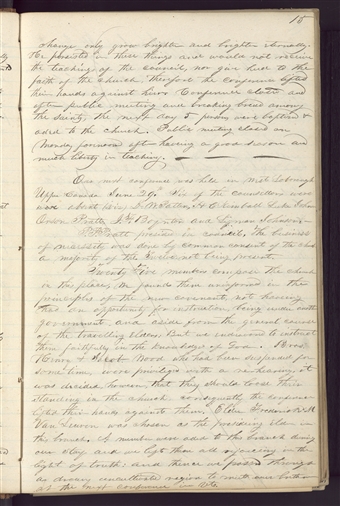 15
change only grow brighter and brighter eternally.
He persisted in these things and would not receive
the teaching of the council, nor give heed to the
faith of the church. Therefore the conference lifted
their hands against him. Conference closed and
after public meeting and breaking bread among
the saints, the next day 5 persons were baptized &
added to the church. Public meeting closed on
Monday forenoon after having a good season and
much liberty in teaching.
Our next conference was held in West Loborough
Upper Canada June 29th. Six of the councillors were
present D. W. Patten, H. C. Kimball Luke Johnson
Orson Pratt, J. F. Boynton and Lyman Johnson.
P. Pratt presided in council, the business
of necessity was done by common consent of the church
a majority of the Twelve not being present.
Twenty five members compose the church
in this place. We found them uninformed in the
principles of the new covenant, not having
had an opportunity for instruction, being under another
government and aside from the general course
of the travelling Elders. But we endeavored to instruct
them faithfully in the knowledge of God.
Henry & Jacob Wood who had been suspended for
some time, were privileged with a rehearing, it
was decided, however, that they should loose their
standing in the church, consequently the conference
lifted their hands against them. Elder Frederick M
Van Leuven was chosen as the presiding elder in
the branch. A number were added to this branch during
our stay and we left them all rejoicing in the
light of truth: and thence we passed through
a dreary uncultivated region to
at the next conference in